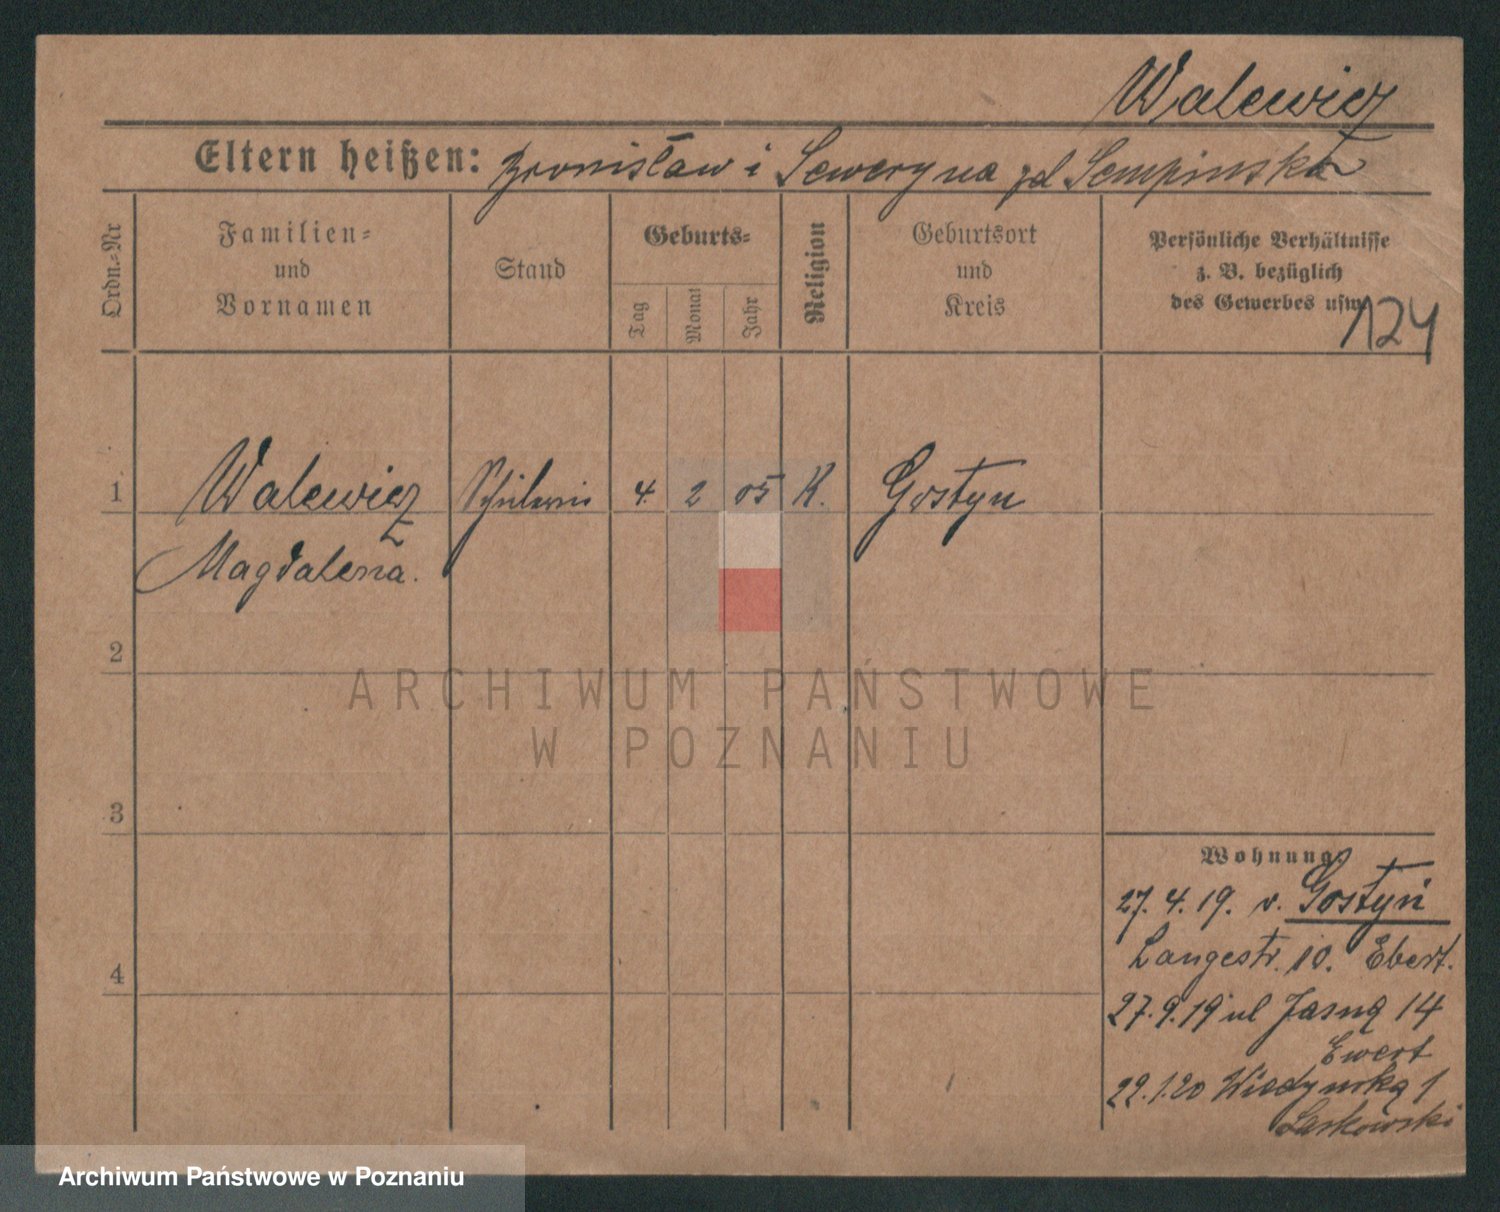 Walewicz
Eltern heißen: Bronisław i Seweryna zd Sempinska
Ordn.-Nr
Familien- und Vornamen
Stand
Geburts-
Tag
Monat
Jahr
Religion
Geburtsort und Kreis
Persönliche Verhältnisse
z. B. bezüglich
des Gewerbes usw.
124
1 Walewicz Schülerin 4. 2 05 K. Gostyn
Magdalena.
2
ARCHIWUM PAŃSTWOWE
W POZNANIU
3
Wohnung:
27. 4. 19. v. Gostyń
Langestr. 10. Ebert.
4
27.9.19 ul Jasną 14
Ewert
22.1.20 Wiedyńską 1
Laskowski
Archiwum Państwowe w Poznaniu